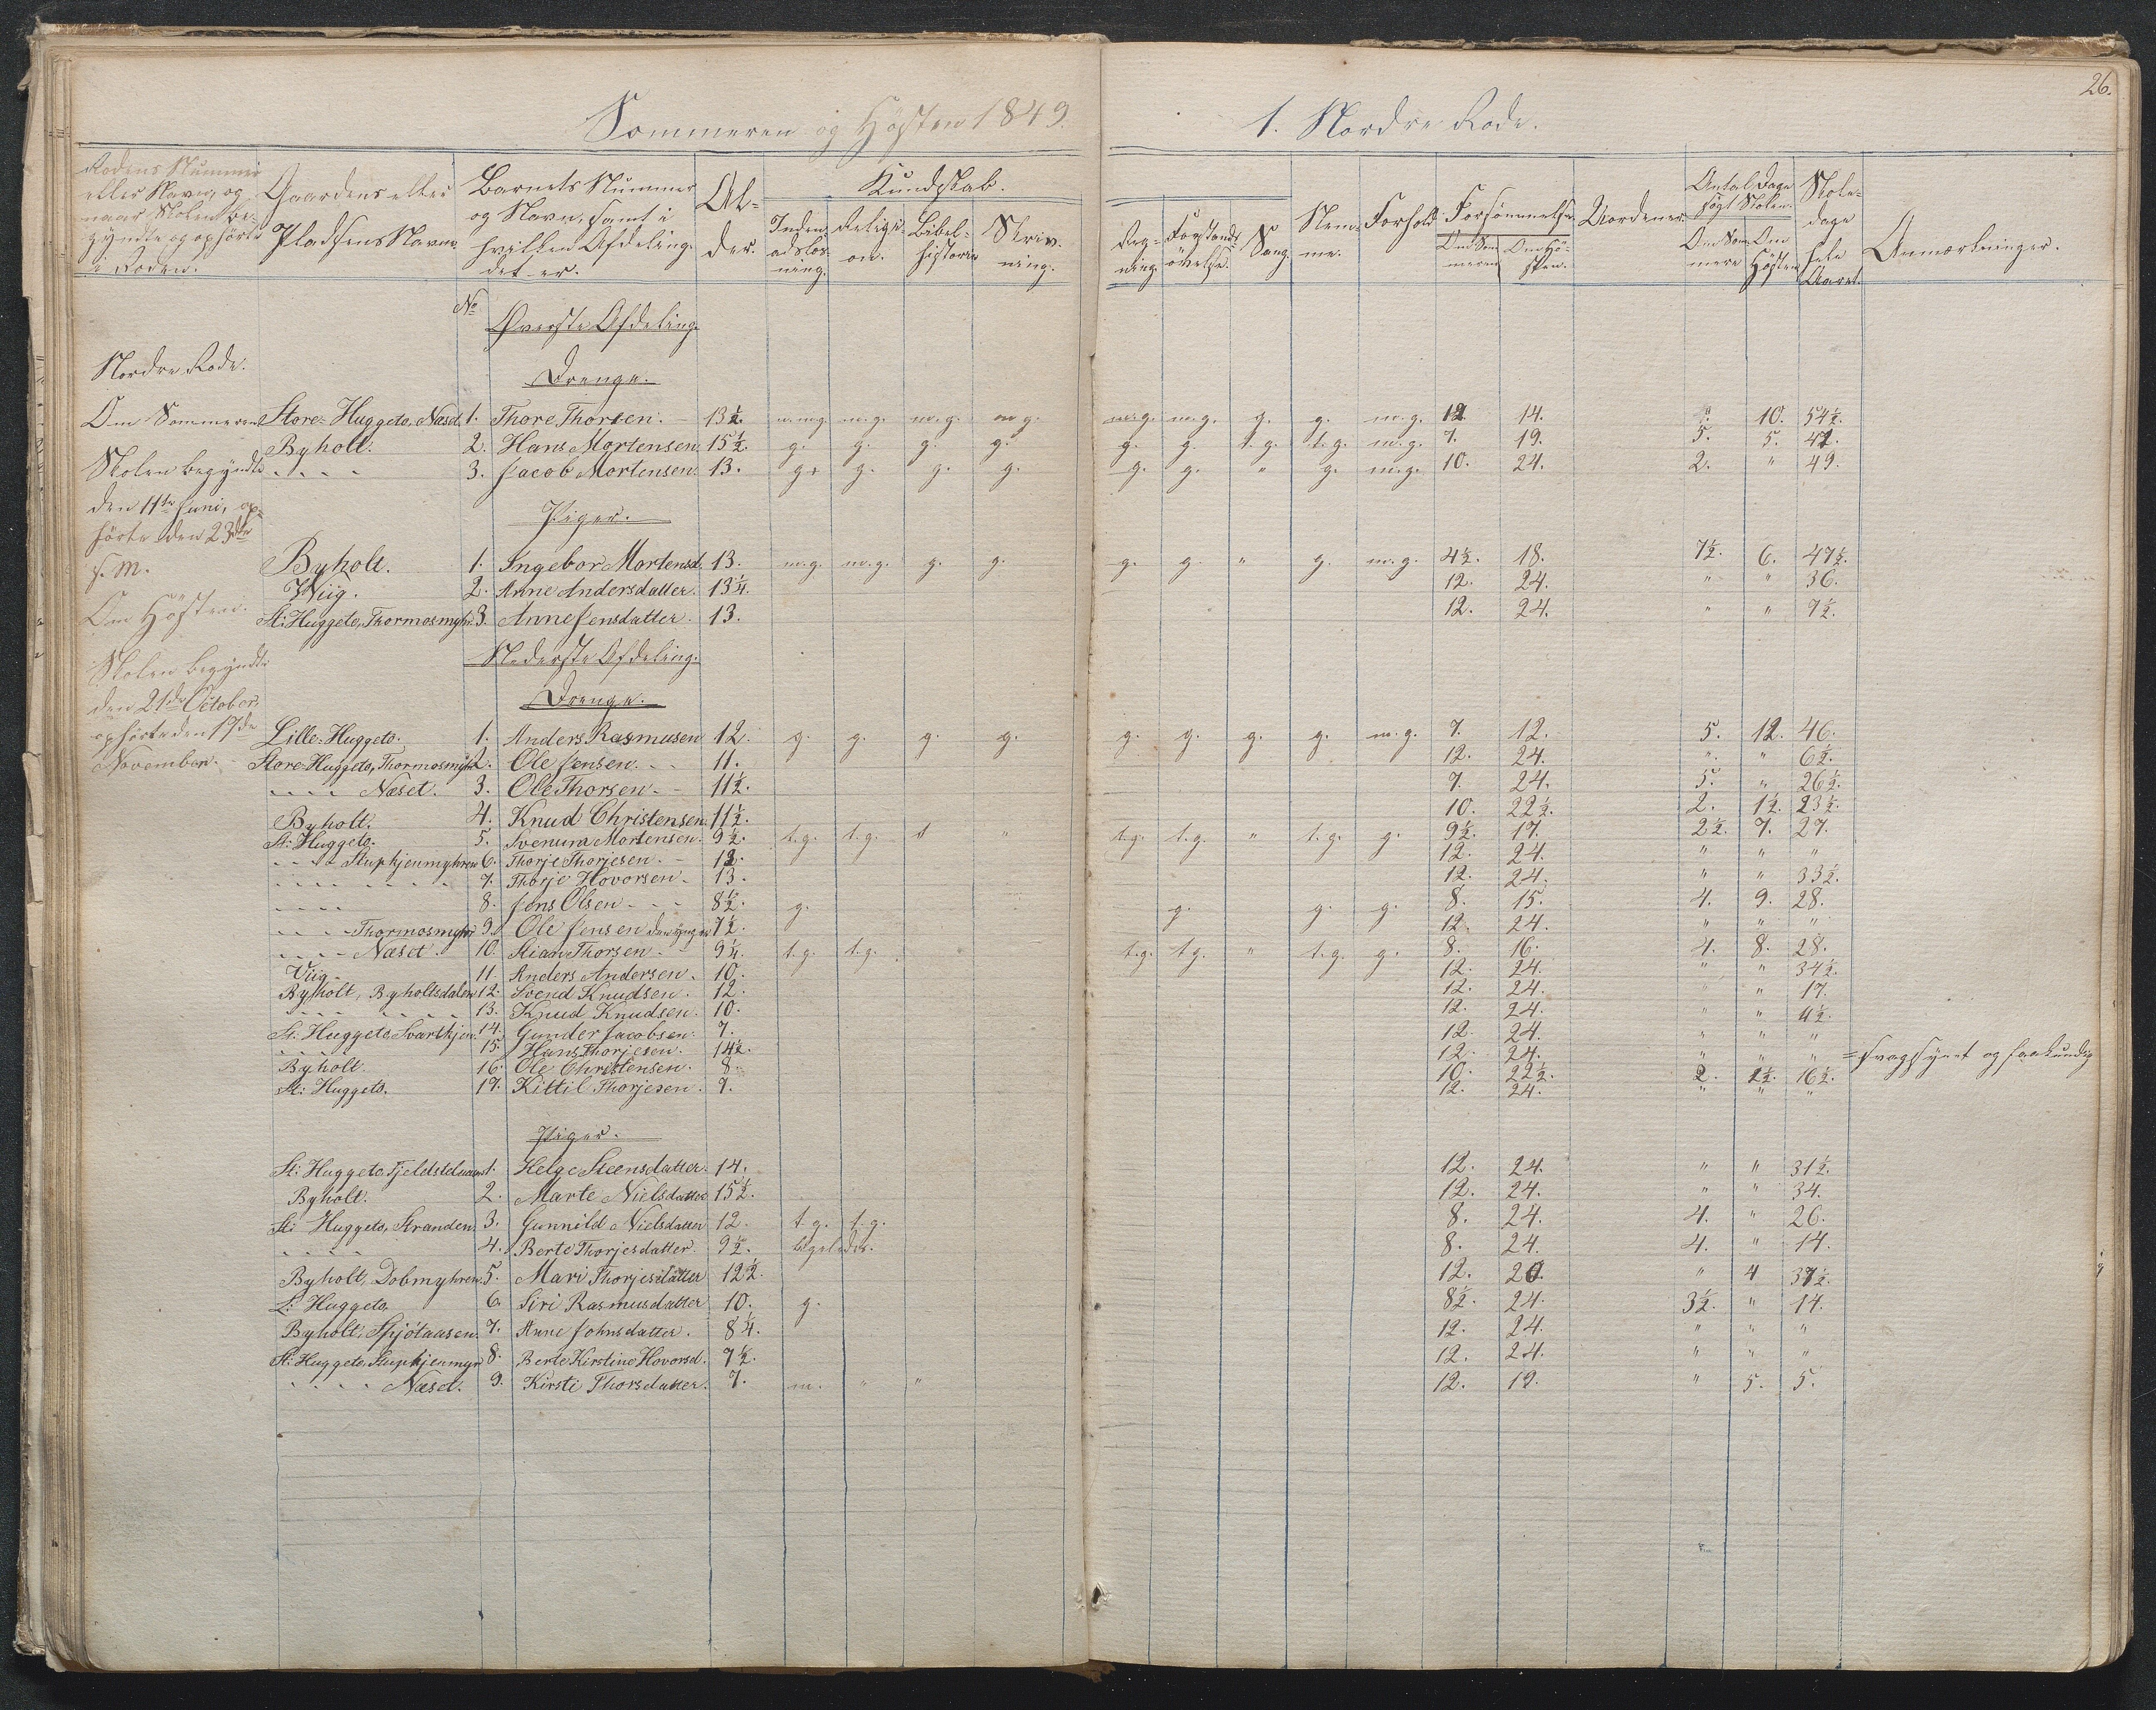 26.
Sommeren og Høsten 1849.
1. Nordre Rode.
Rodens Nummer eller Navn, og naar Skolen begyndte og ophørte i Roden.
Gaardens eller Pladsens Navn.
Barnets Nummer og Navn, samt i hvilken Afdeling det er.
Alder.
Kundskab.
Indenadslæsning.
Religion.
Bibelhistorie
Skrivning.
Regning.
Forstandsøvelse.
Sang
Nemme.
Forhold.
Forsømmelse.
Om Sommeren
Om Høsten.
Uordener
Antal Dage søgt Skolen.
Om Sommere
Om Høsten
Skoledage hele Aaret.
Anmærkninger.
No
Øverste Afdeling.
Nordre Rode.
Drenge.
Om Sommeren Store-Huggeto, Næset 1. Thore Thorsen. 13½ m.m.g. m.g. m.g. m g. m.g. m.g. g. g. m.g. 12 14. " 10. 54½.
Byholt. 2. Hans Mortensen. 15½. g. g. g. g. g. g. t.g. t.g. m.g. 7. 19. 5. 5. 42.
Skolen begyndte - - - - 3. Jacob Mortensen. 13. g. g. g. g. g. g. " g. m.g. 10. 24. 2. " 49.
den 11te Juni, op-
hørte den 23de
s. M.
Piger.
Byholt. 1. Ingebor Mortensd. 13. m.g. m.g. g. g. g. g. " g. m.g. 4½. 18. 7½. 6. 47½.
Wiig. 2. Anne Andersdatter. 13¼. 12. 24. " " 36.
Om Høsten.
St: Huggeto, Thormosmyhr 3. Anne Jensdatter. 13. 12. 24. " " 9½.
Nederste Afdeling.
Skolen begyndte
den 21de October,
ophørte den 17de
November.
Drenge.
Lille-Huggeto. 1. Anders Rasmusen 12. g. g. g. g. g. g. g. g. m.g. 7. 12. 5. 12. 46.
Store-Huggeto, Thormosmyhr 2. Ole Jensen. 11. 12. 24. " " 6½.
- - - - Næset. 3. Ole Thorsen 11½. 7. 24. 5. " 26½.
Byholt. 4. Knud Christensen. 11½. 10. 22½. 2. 1½. 23½.
St: Huggeto. 5. Svenum Mortensen. 9½. t.g. t.g. " " t.g. t.g. " t.g. g. 9½. 17. 2½. 7. 27.
- - - Stupkjenmyhren 6. Thorje Thorjesen. 12. 12. 24. " " "
- - - - 7. Thorje Hovorsen 13. 12. 24. " " 33½.
- - - - 8. Jens Olsen 8½. g. g. g. g. 8. 15. 4. 9. 28.
- - - Thormosmyhr 9. Ole Jensen den yngre 7½. 12. 24. " " "
- - - Næset 10. Stian Thorsen 9¼. t.g. t.g. t.g. t.g. " t.g. g. 8. 16. 4. 8. 28.
Viig. 11. Anders Andersen. 10. 12. 24. " " 34½.
Byholt, Byholtsdalen 12. Svend Knudsen. 12. 12. 24. " " 17.
- - - - 13. Knud Knudsen. 10. 12. 24. " " 4½.
St: Huggeto, Svartkjen. 14. Gunder Jacobsen. 7. 12. 24. " " "
- - - - 15. Hans Thorjesen. 14½. 12. 24. " " " = svagsynet og
Byholt. 16. Ole Christensen. 8. 10. 22½. 2. 1½. 16½.
St: Huggeto. 17. Kittil Thorjesen. 7. 12. 24. " " "
Piger.
St: Huggeto, 1. Helge Steensdatter. 14. 12. 24. " " 31½.
Byholt. 2. Marte Nielsdatter 15½. 12. 24. " " 34.
St: Huggeto, Stranden. 3. Gunnild Nielsdatter 12. t.g. t.g. 8. 24. 4. " 26.
- - - - 4. Berte Thorjesdatter. 9½. ligeledes. 8. 24. 4. " 14.
Byholt, Dobmyhren. 5. Mari Thorjesdatter 12½. 12. 20. " 4 37½.
L: Huggeto 6. Siri Rasmusdatter 10. g. 8½. 24. 3½. " 14.
Byholt, 7. Anne Johnsdatter. 8¼. 12. 24. " " "
St: Huggeto, Stupkjenmyr 8. Berte Kirstine Hovorsd. 7½. 12. 24. " " "
- - - - Næset. 9. Kirsti Thorsdatter. 7. m. " " 12. 19. " 5. 5.